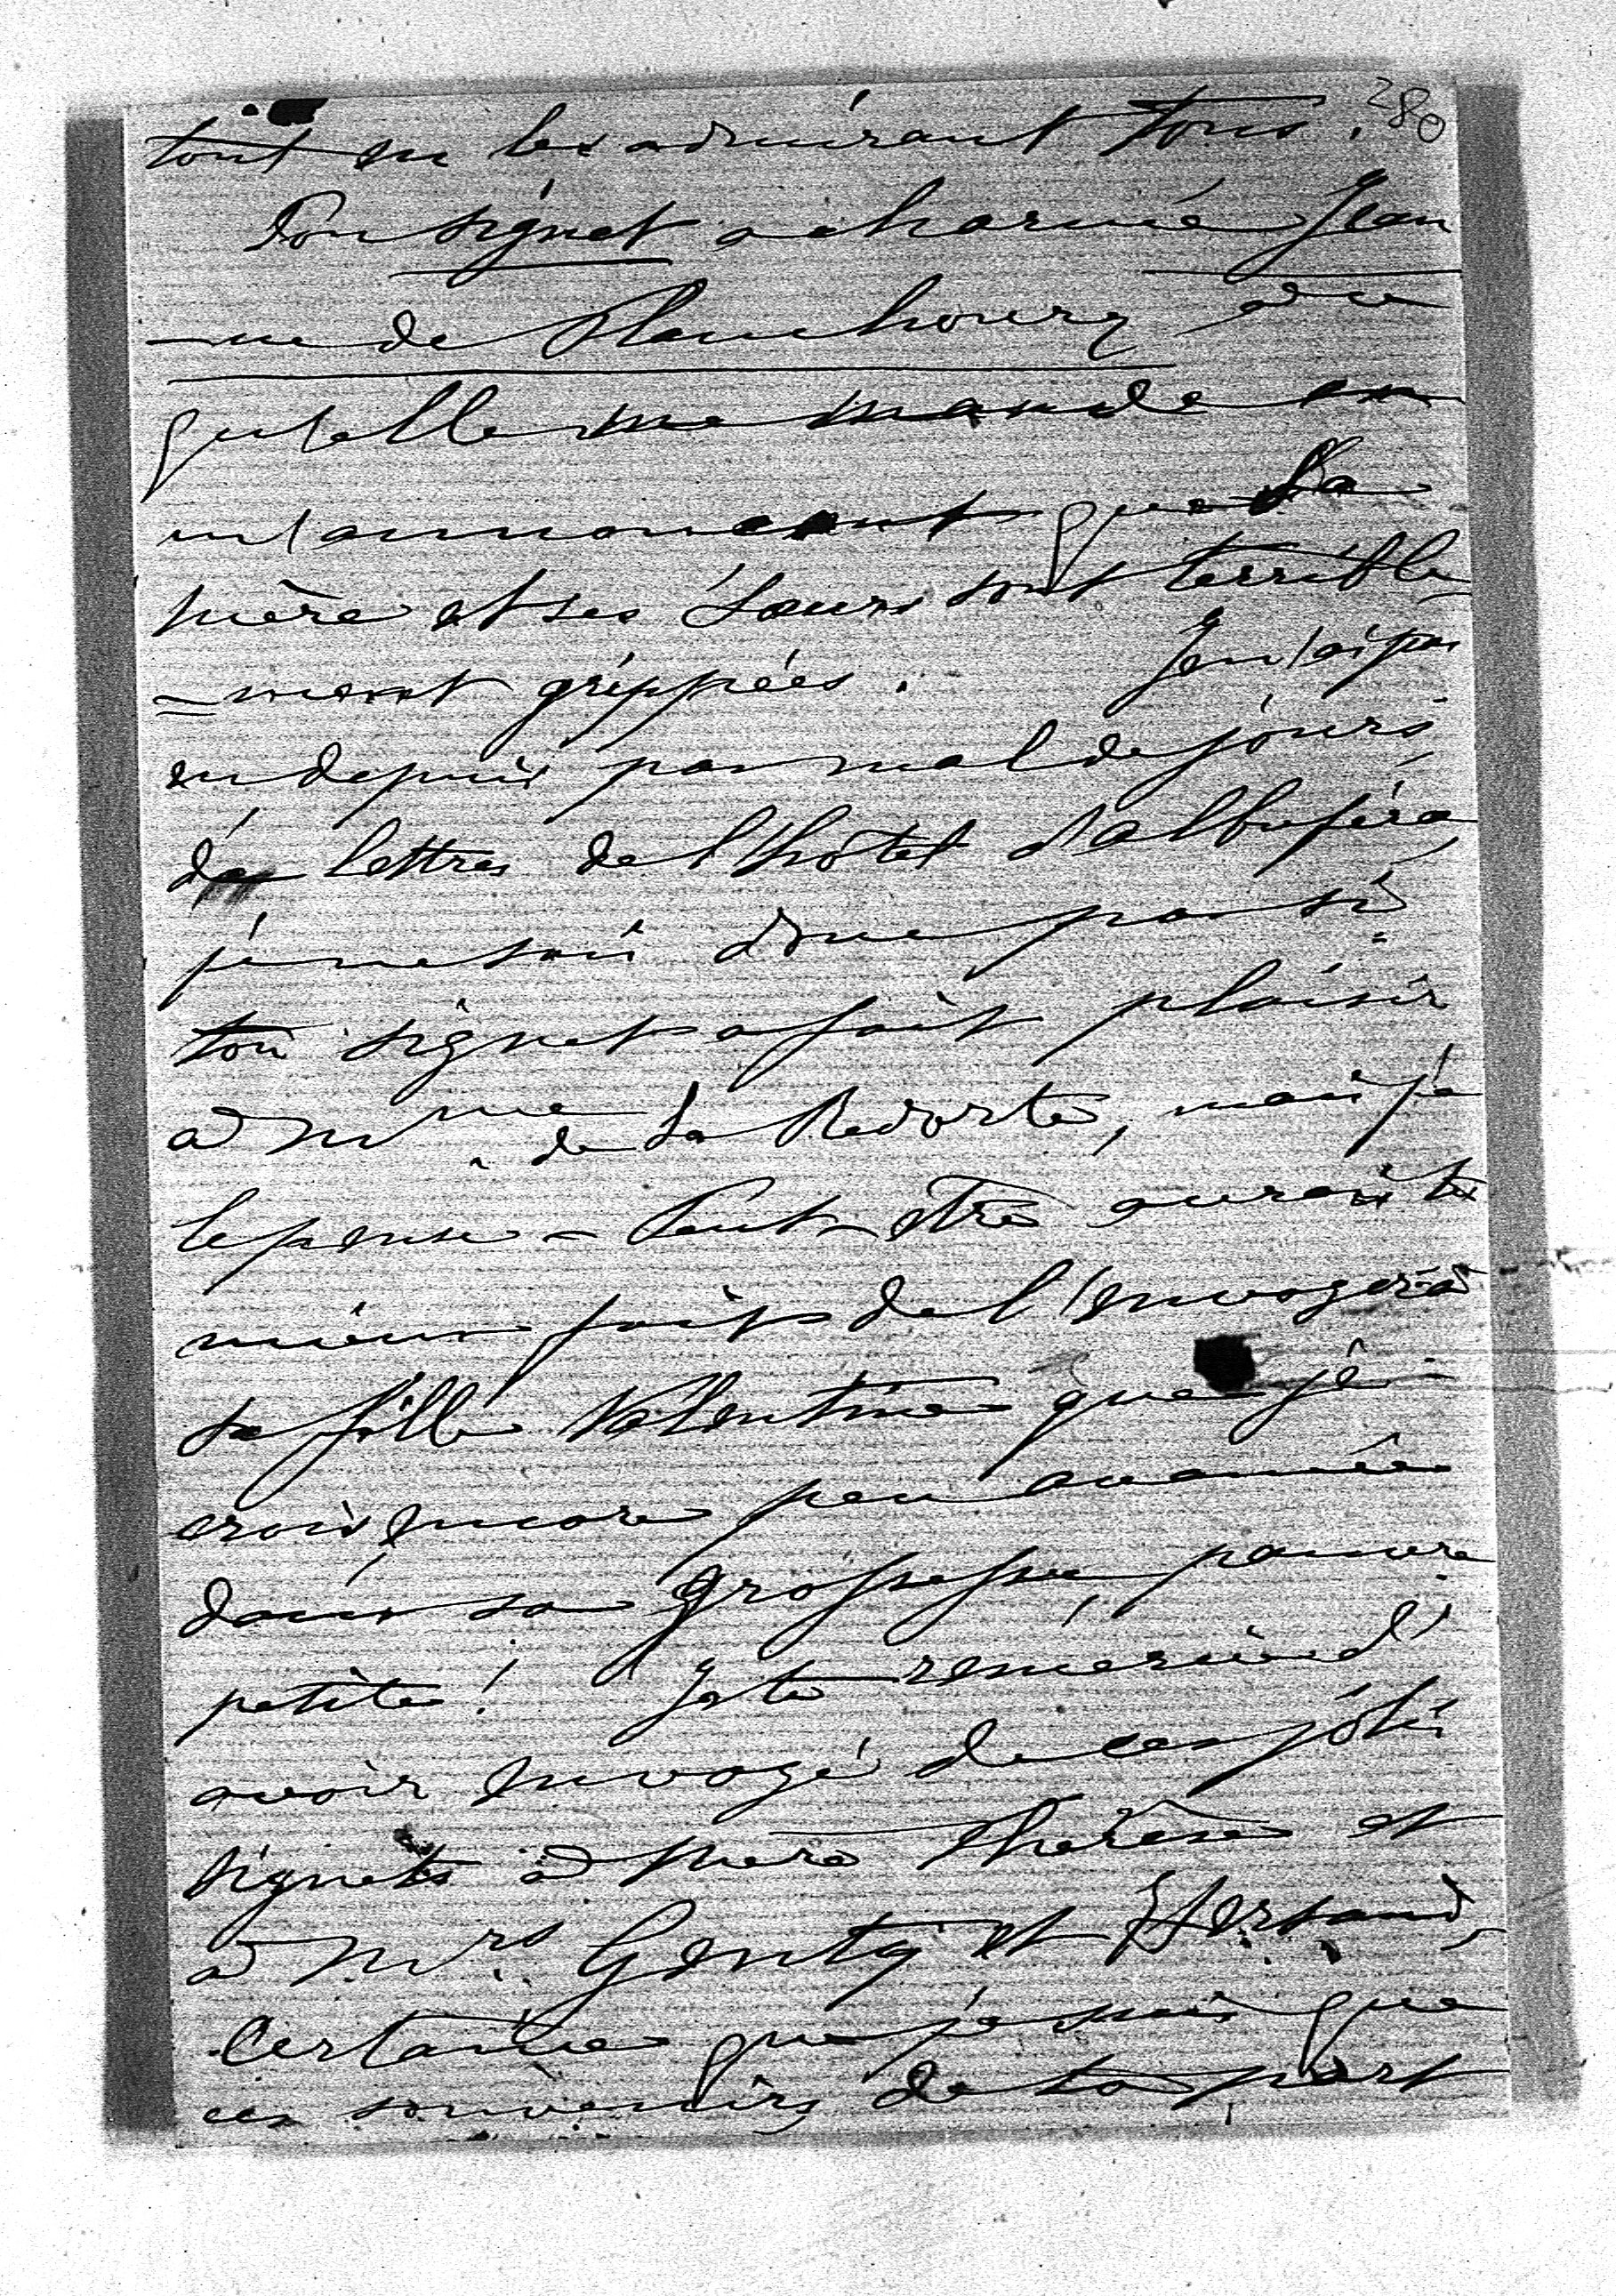 280
tout en les admirant tous.
Ton signet a charmé Jean
-ne de Planchoury à ce
qu'elle me mande en
m'annonçant que sa
mère et ses sœurs sont terrible
=ment grippées. Je n'ai pas
eu depuis pas mal de jours,
des lettres de l'hôtel d'albuféra,
je ne sais donc pas si
ton signet a fait plaisir
à Mme de La Redorte, mais je
le pense – Peut-être aurais tu
mieux fait de l'envoyer à
sa fille Valentine que je
crois encore peu avancée
dans sa grossesse, pauvre
petite! Je te remercie d'
avoir envoyé de ces jolis
signets à Mère Thérèse et
à Mrs. Genty et Hersand,
Certaine que je suis que
ces souvenirs de ta part